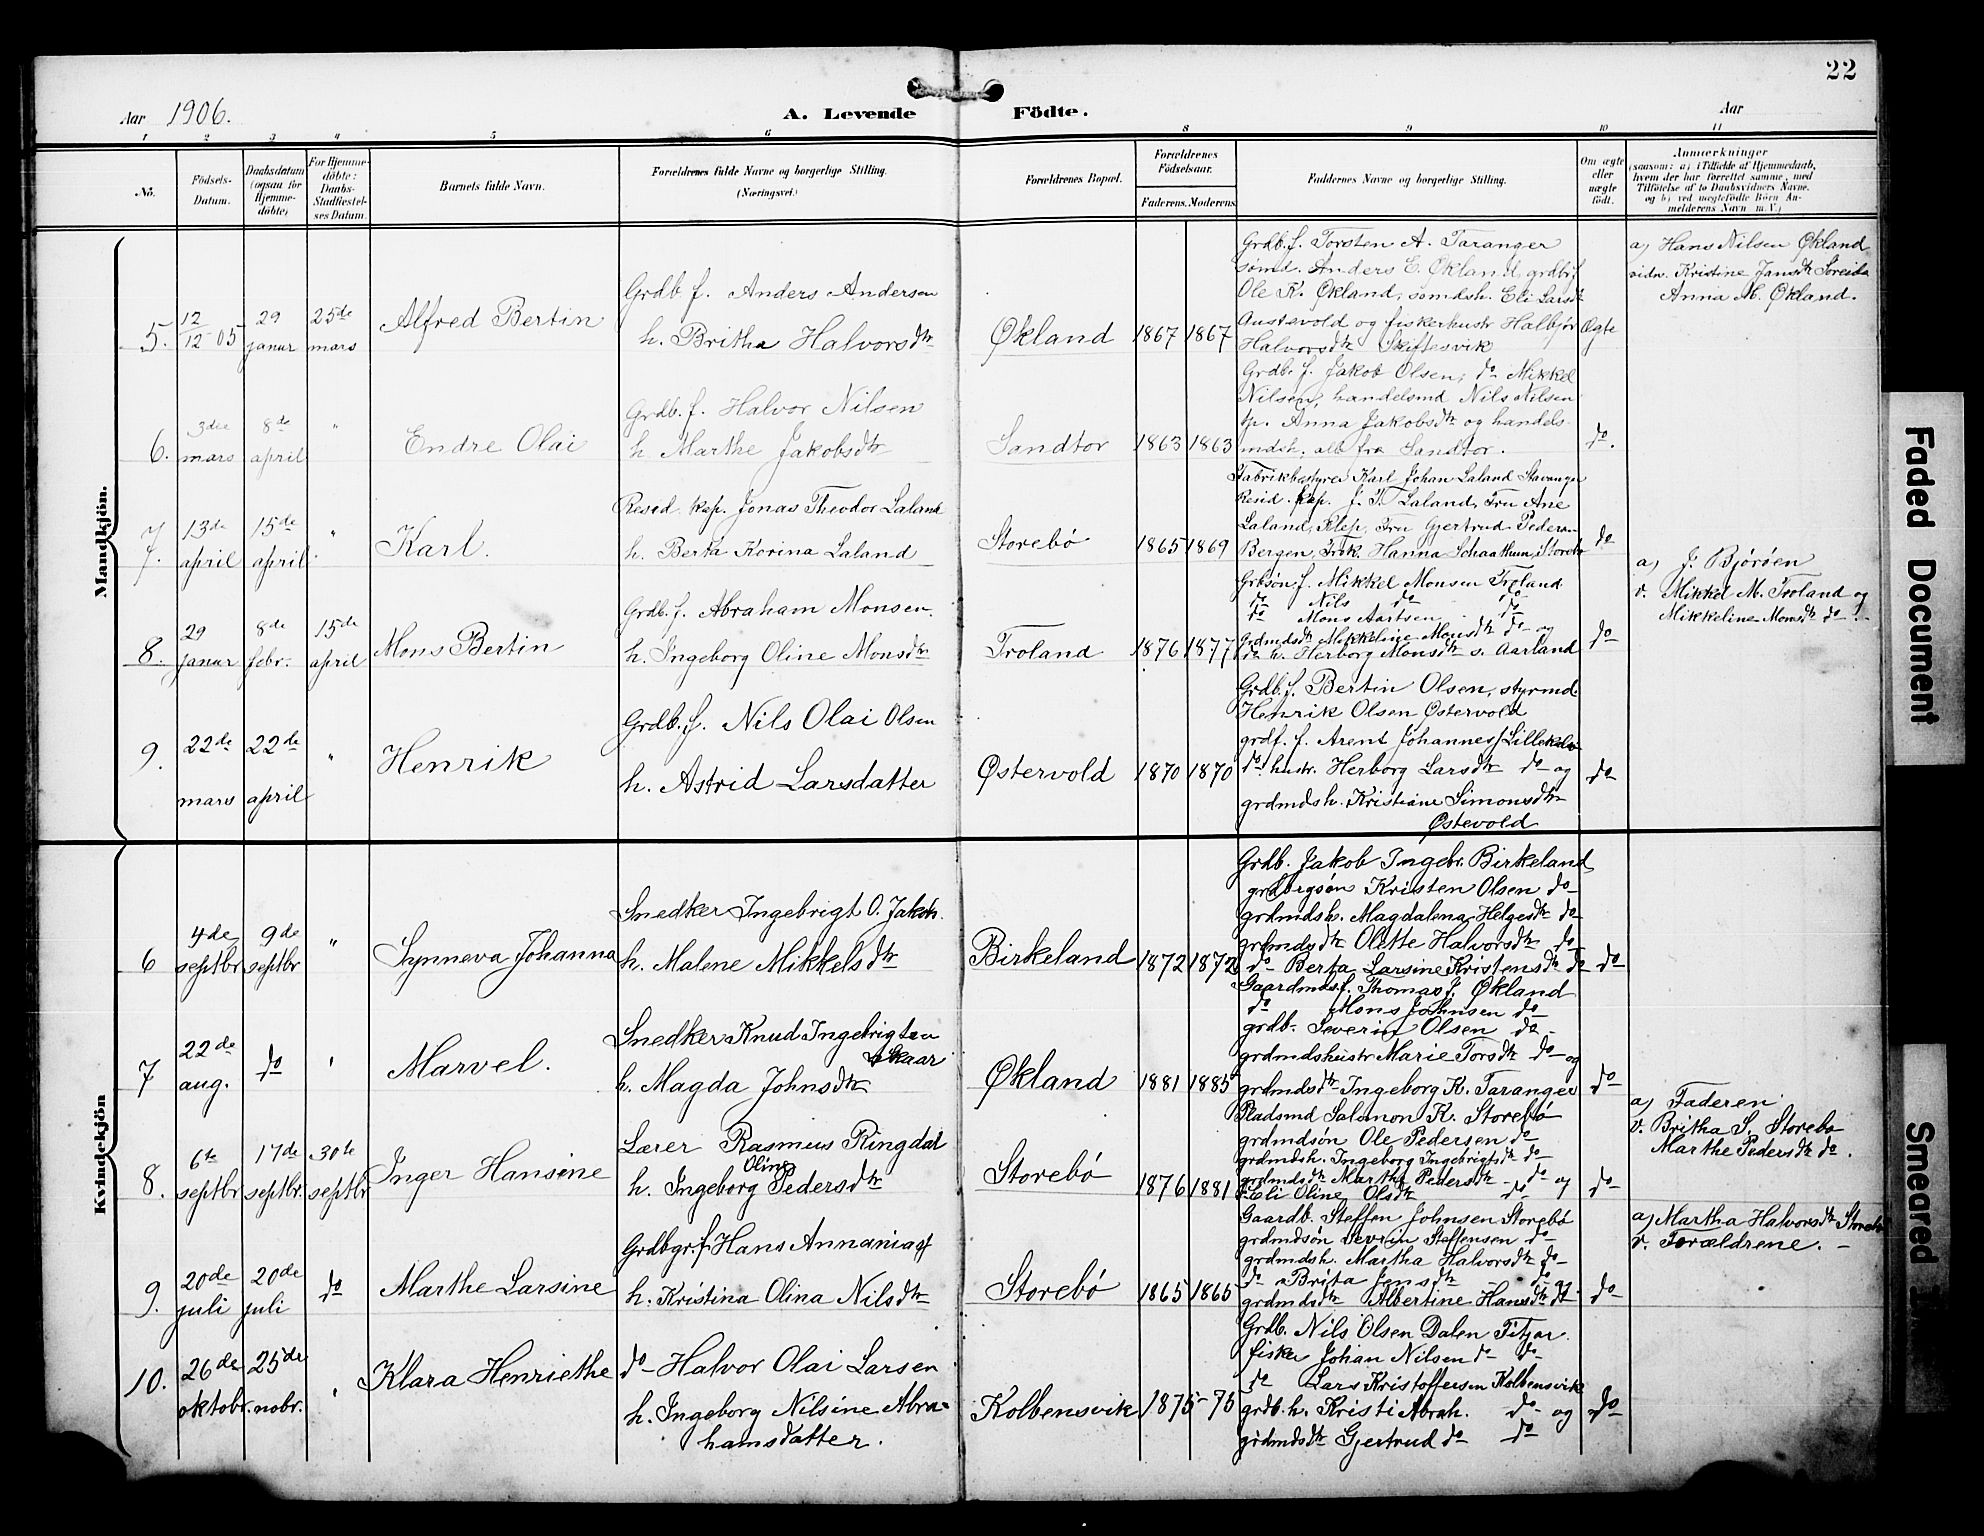 22
Aar 1906.
A. Levende Födte.
Aar
1 2 3 4 5 6 8 9 10 11
No.
Födsels-
Datum.
Daabsdatum
(ogsaa for
Hjemme-
döbte)
For Hjemme-
döbte:
Daabs-
Stadfæstel-
ses Datum.
Barnets fulde Navn.
Forældrenes fulde Navne og borgerlige Stilling.
(Næringsvei.)
Forældrenes Bopæl.
Forældrenes
Födselsaar.
Faderens. Moderens.
Faddernes Navne og borgerlige Stilling.
Om ægte
eller
uægte
født.
Anmærkninger
(saasom: a) i Tilfælde af Hjemmedaab,
hvem der har forrettet samme, med
Tilföielse af to Daabsvidners Navne.
og b) ved uægtefödte Börn An-
melderens Navn m. V.)
Mandkjön.
5.
12/12 05
29
januar
25de
mars
Alfred Bertin
Grdb. f. Anders Andersen
h. Britha Halvorsdtr
Økland
1867 1867
Grdb. f. Torsten A. Taranger
sømd. Anders E. Økland, grdb. f.
Ole K. Økland, sømdsh. Eli Larsdtr
Austevold og fiskerhustr Halbjør
Halvorsdtr Skiftesvik
Ægte
a) Hans Nilsen Økland
vidn. Kristine Jansdtr Soreide
Anna M. Økland.
6.
3die
mars
8de
april
"
Endre Olai
Grdb. f. Halvor Nilsen
h. Marthe Jakobsdtr
Sandtor
1863 1863
Grdb. f. Jakob Olsen, do Mikkel
Nilsen, handelsmd Nils Nilsen
tp. Anna Jakobsdtr og handels-
mdsh. alle fra Sandtor.
do.
7.
13de
april
15de
april
"
Karl.
Resid. kap. Jonas Theodor Laland
h. Berta Korina Laland
Storebö
1865 1869
Fabrikbestyrer Karl Johan Laland Stavanger
Resid. kap. J. T. Laland, Fru Ane
Laland, Klep, Fru Gjertrud Pedersen
Bergen, Frøk. Hanna Schaathun, Storebø
do
8.
29
januar
8de
febr.
15de
april
Mons Bertin
Grdb. f. Abraham Monsen.
h. Ingeborg Oline Monsdtr
Troland
1876 1877
Grbsøn f. Mikkel Monsen Troland
do Nils do do
do Mons Aartsen do
Grdmdsdtr Mikkeline Monsdtr do og
do h. Herborg Monsdtr s. Aarland
do
a) J. Bjørøen
v. Mikkel M. Troland og
Mikkeline Monsdtr do.
9.
22de
mars
22de
april
"
Henrik
Grdb. f. Nils Olai Olsen
h. Astrid Larsdatter
Østervold
1870 1870
Grdb. f. Bertin Olsen, styrmd.
Henrik Olsen Østervold
grdf. f. Arent Johannes
do hustr. Herborg Larsdtr do og
grdmdsh. Kristiane Simonsdtr
Østevold
do
Kvindekjön
6
4de
septbr
9de
septbr
"
Synneva Johanna
Snedker Ingebrigt O. Jakob.
h. Malene Mikkelsdtr
Birkeland
1872 1872
Grdb. Jakob Ingebr. Birkeland
grdbrgsøn Kristen Olsen do
grdmdsh. Magdalena Helgesdtr do
grdmdsdtr Olette Halvorsdtr do
do Berta Larsine Kristensdtr do
do
7
22de
aug.
do
"
Marvel.
Snedker Knud Ingebrigtsen
Skaar
h. Magda Johnsdtr
Økland
1881 1885
Gaardmds f. Thomas J. Økland
do Mons Johnsen do
grdb. Severin Olsen do
grdmdshustr Marie Torsdtr do og
grdmdsdtr Ingeborg K. Taranger
do
8.
6te
septbr
17de
septbr.
30te
septbr
Inger Hansine
Lærer Rasmus Ringdal
h. Ingeborg Oline Pedersdtr
Storebö
1876 1881
Pladsmd Salomon K. Storebö
grdmdsøn Ole Pedersen do
grdmdsh. Ingeborg Ingebrigtsdtr do
grdmdsdtr Martha Pedersdtr do og
Eli Oline Olsdtr do
do
a) Faderen
v. Britha S. Storebø
Marthe Pedersdtr do.
9.
20de
juli
20de
juli
do
Marthe Larsine
Grdbgr. f. Hans Annanias
h. Kristina Olina Nilsdtr
Storebö
1865 1865
Gaardb. Steffen Johnsen Storebö
grdmdsøn Severin Steffensen do
grdmdsh. Martha Halvorsdtr do
do Brita Jensdtr do
grdmdsdtr Albertine Hansdtr do
do
a) Martha Halvorsdtr Storebø
v. Forældrene.
10.
26de
oktobr.
25de
nobr.
"
Klara Henriethe
do Halvor Olai Larsen
h. Ingeborg Nilsine Abra-
hamsdatter.
Kolbensvik
1875-75
Grdb. Nils Olsen Dalen Fitjar.
fisker Johan Nilsen do do
do Lars Kristoffersen Kolbensvik
grdb. h. Kristi Abrah. do og
grdmdsdtr Gjertrud do do
do
Faded Document
Smeared